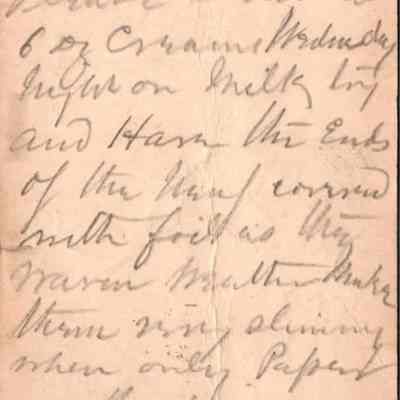 6 Dz Creams Wednesday
Night on Milk
and Have the Ends
of the covered
with foil as the
warm Weather Makes
them very slimmy
when only Paper